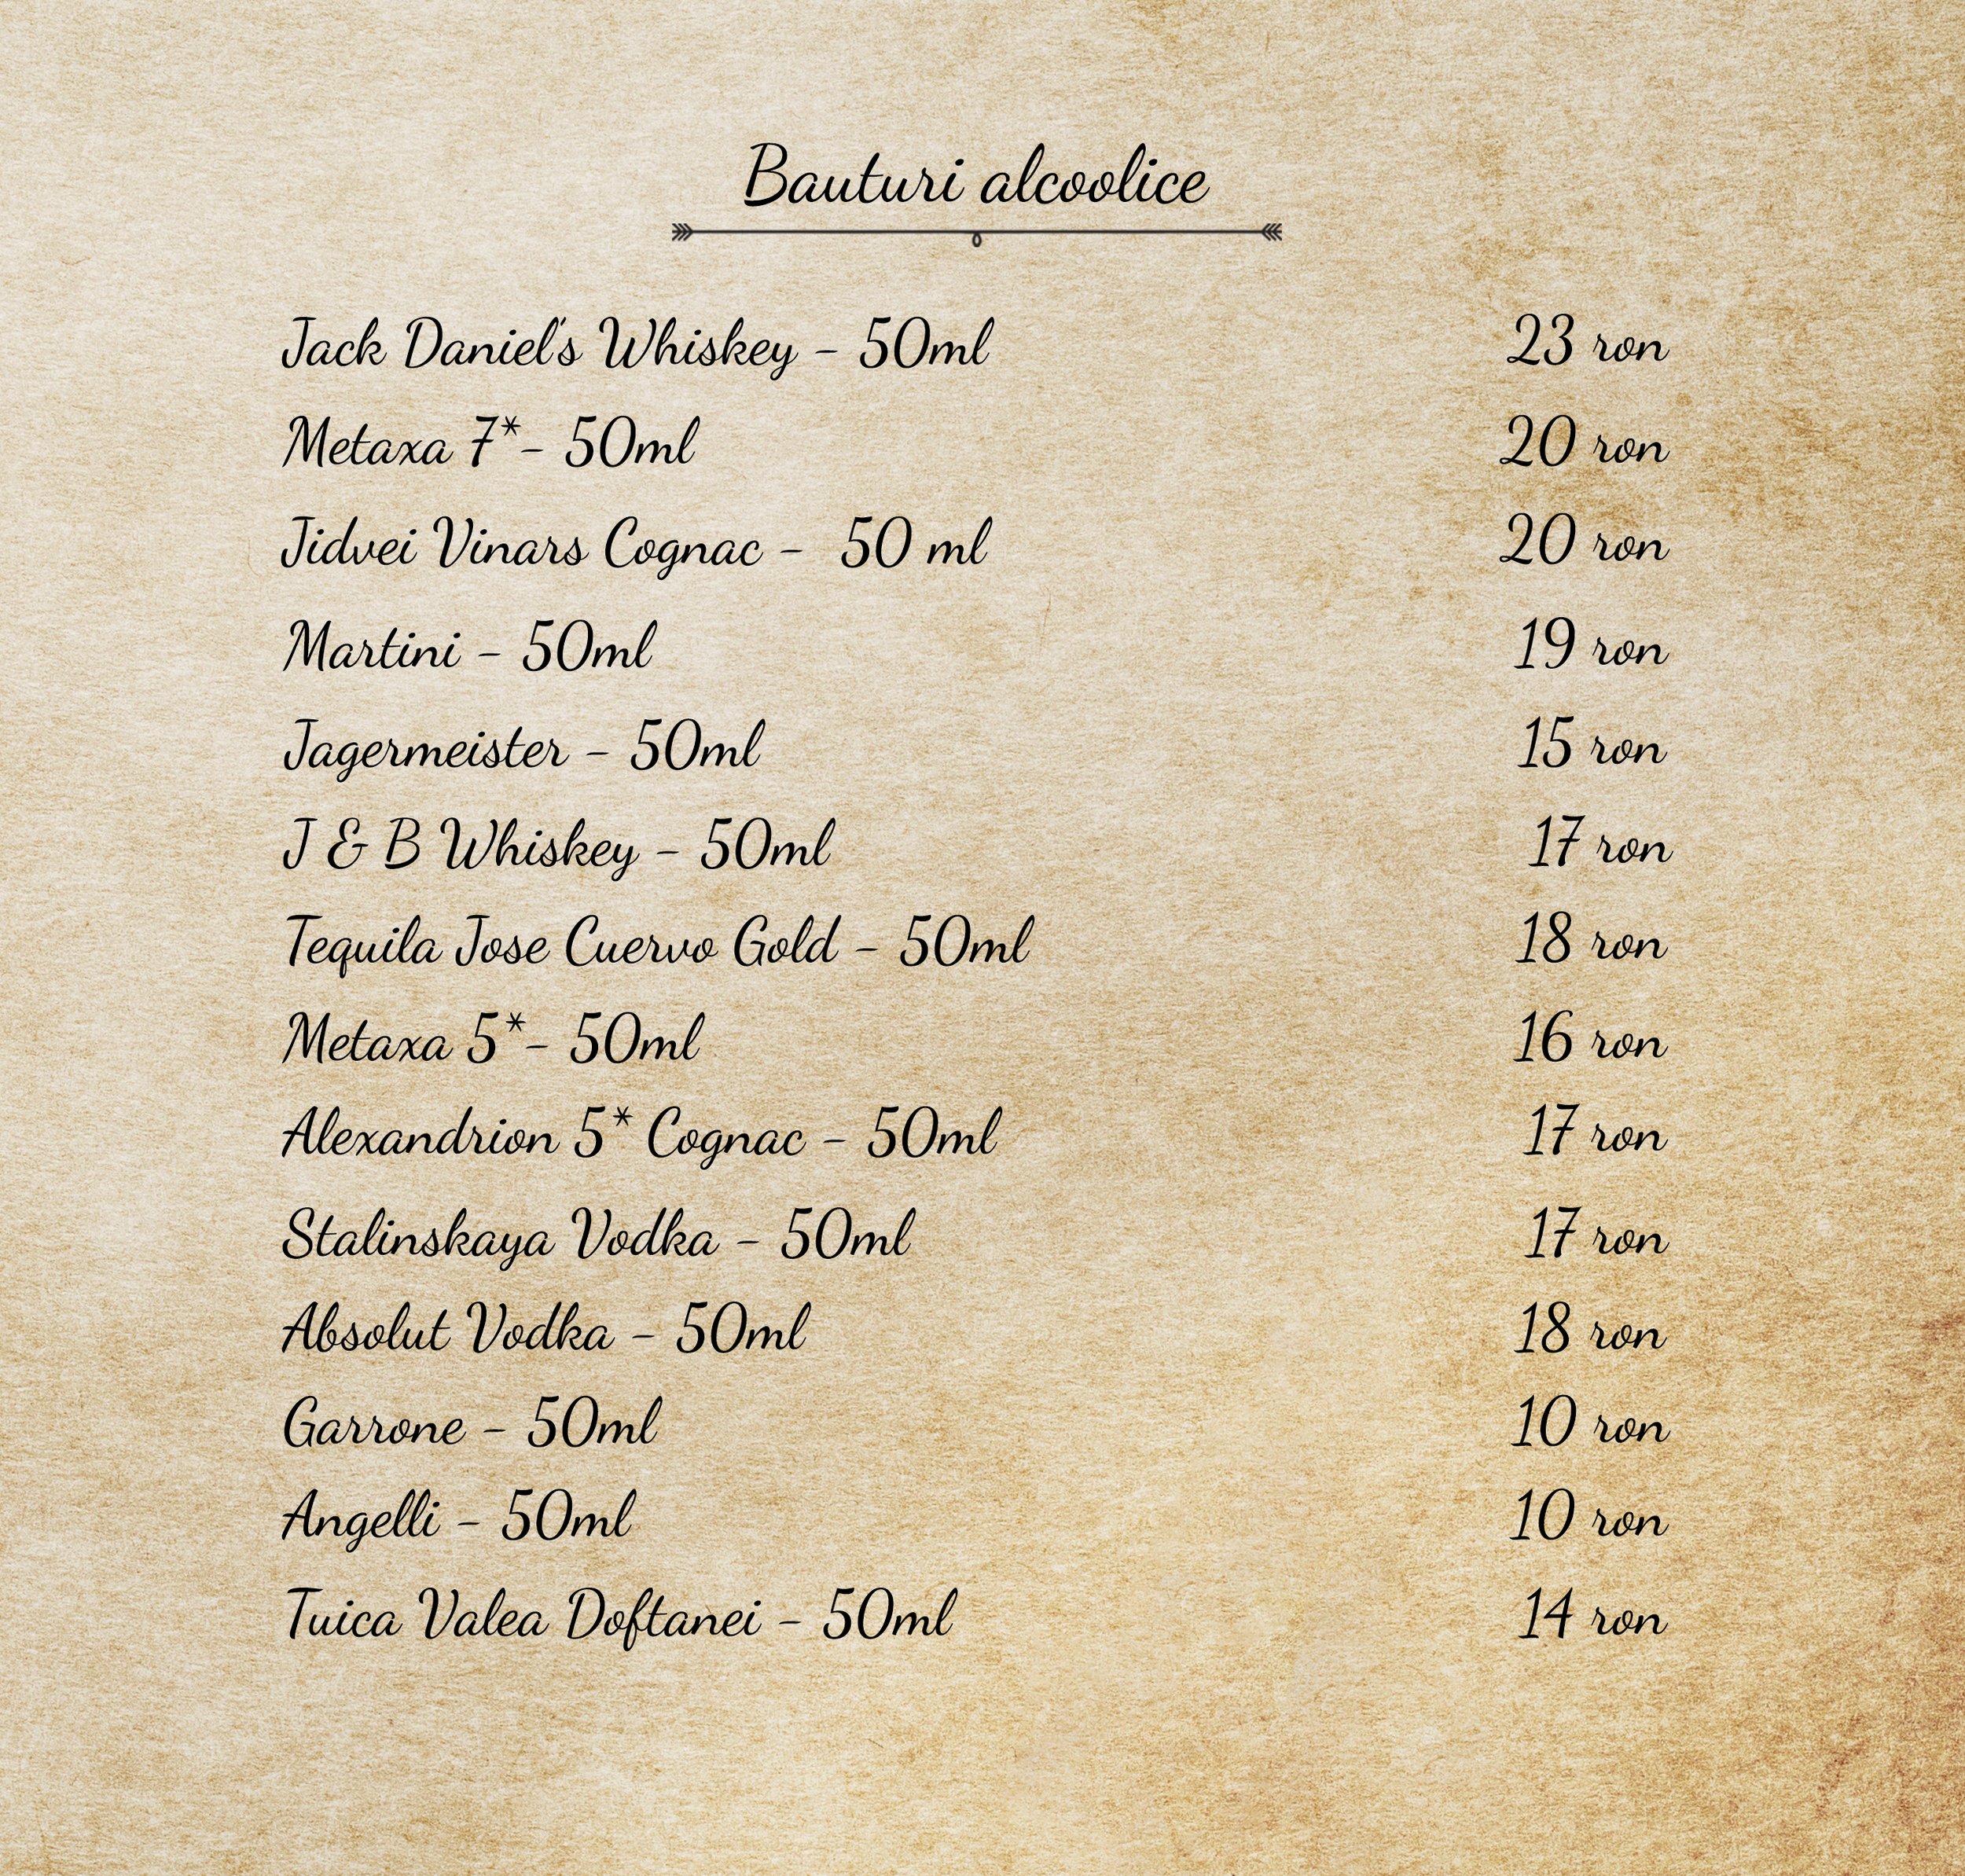 Bauturi alcoolice
Jack Daniel's Whiskey - 50ml 23 ron
Metaxa 7*- 50ml 20 ron
Jidvei Vinars Cognac - 50 ml 20 ron
Martini - 50ml 19 ron
Jagermeister - 50ml 15 ron
J & B Whiskey - 50ml 17 ron
Tequila Jose Cuervo Gold - 50ml 18 ron
Metaxa 5*- 50ml 16 ron
Alexandrion 5* Cognac - 50ml 17 ron
Stalinskaya Vodka - 50ml 17 ron
Absolut Vodka - 50ml 18 ron
Garrone - 50ml 10 ron
Angelli - 50ml 10 ron
Tuica Valea Doftanei - 50ml 14 ron